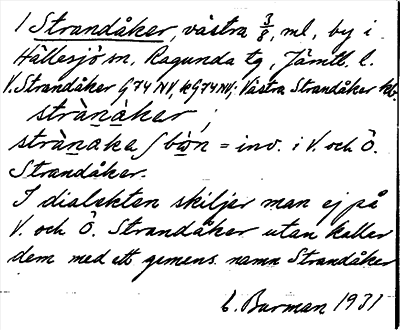 1 Strandåker, västra 3/8, ml, by i
Hällesjö sn, Ragunda tg, Jämtl. l.
V. Strandåker G 74 NV, kG 74 NV; Västra Strandåker
strànåker;
strànaka ʃ bòn = inv. i V. och Ö.
Strandåker.
I dialekten skiljer man ej på
V. och Ö. Strandåker utan kallar
dem med ett gemens. namn Strandåker
Burman 1931